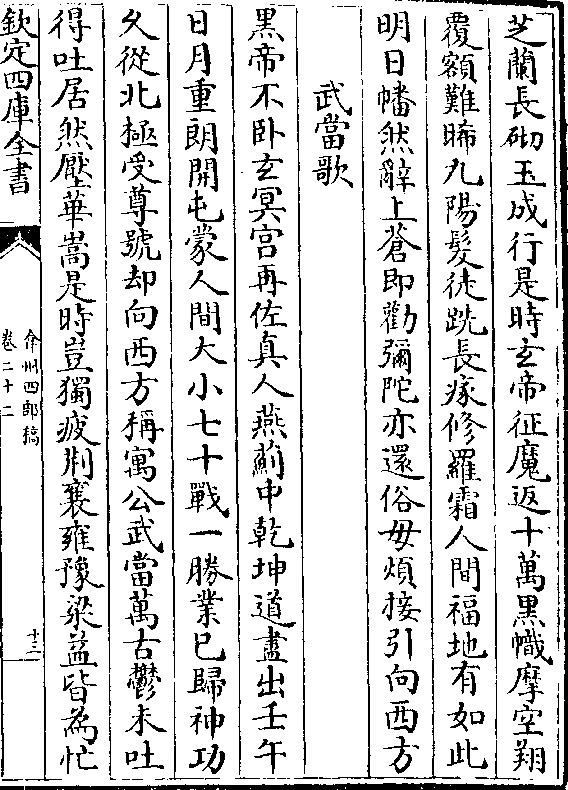 芝蘭長砌玉成行是時玄帝征魔返十萬黑幟摩空翔
覆額難晞九陽髮徒跣長瘃修羅霜人間福地有如此
明日幡然辭上蒼即勸彌陀亦還俗毋煩接引向西方
武當歌
黑帝不卧玄冥宫再佐真人燕薊中乾坤道盡出壬午
日月重朗開屯蒙人間大小七十戰一勝業已歸神功
久從北極受尊號却向西方稱寓公武當萬古鬱未吐
得吐居然壓華嵩是時豈獨疲荆襄雍豫梁益皆為忙
欽定四庫全書
弇州四部稿
卷二十二
十三